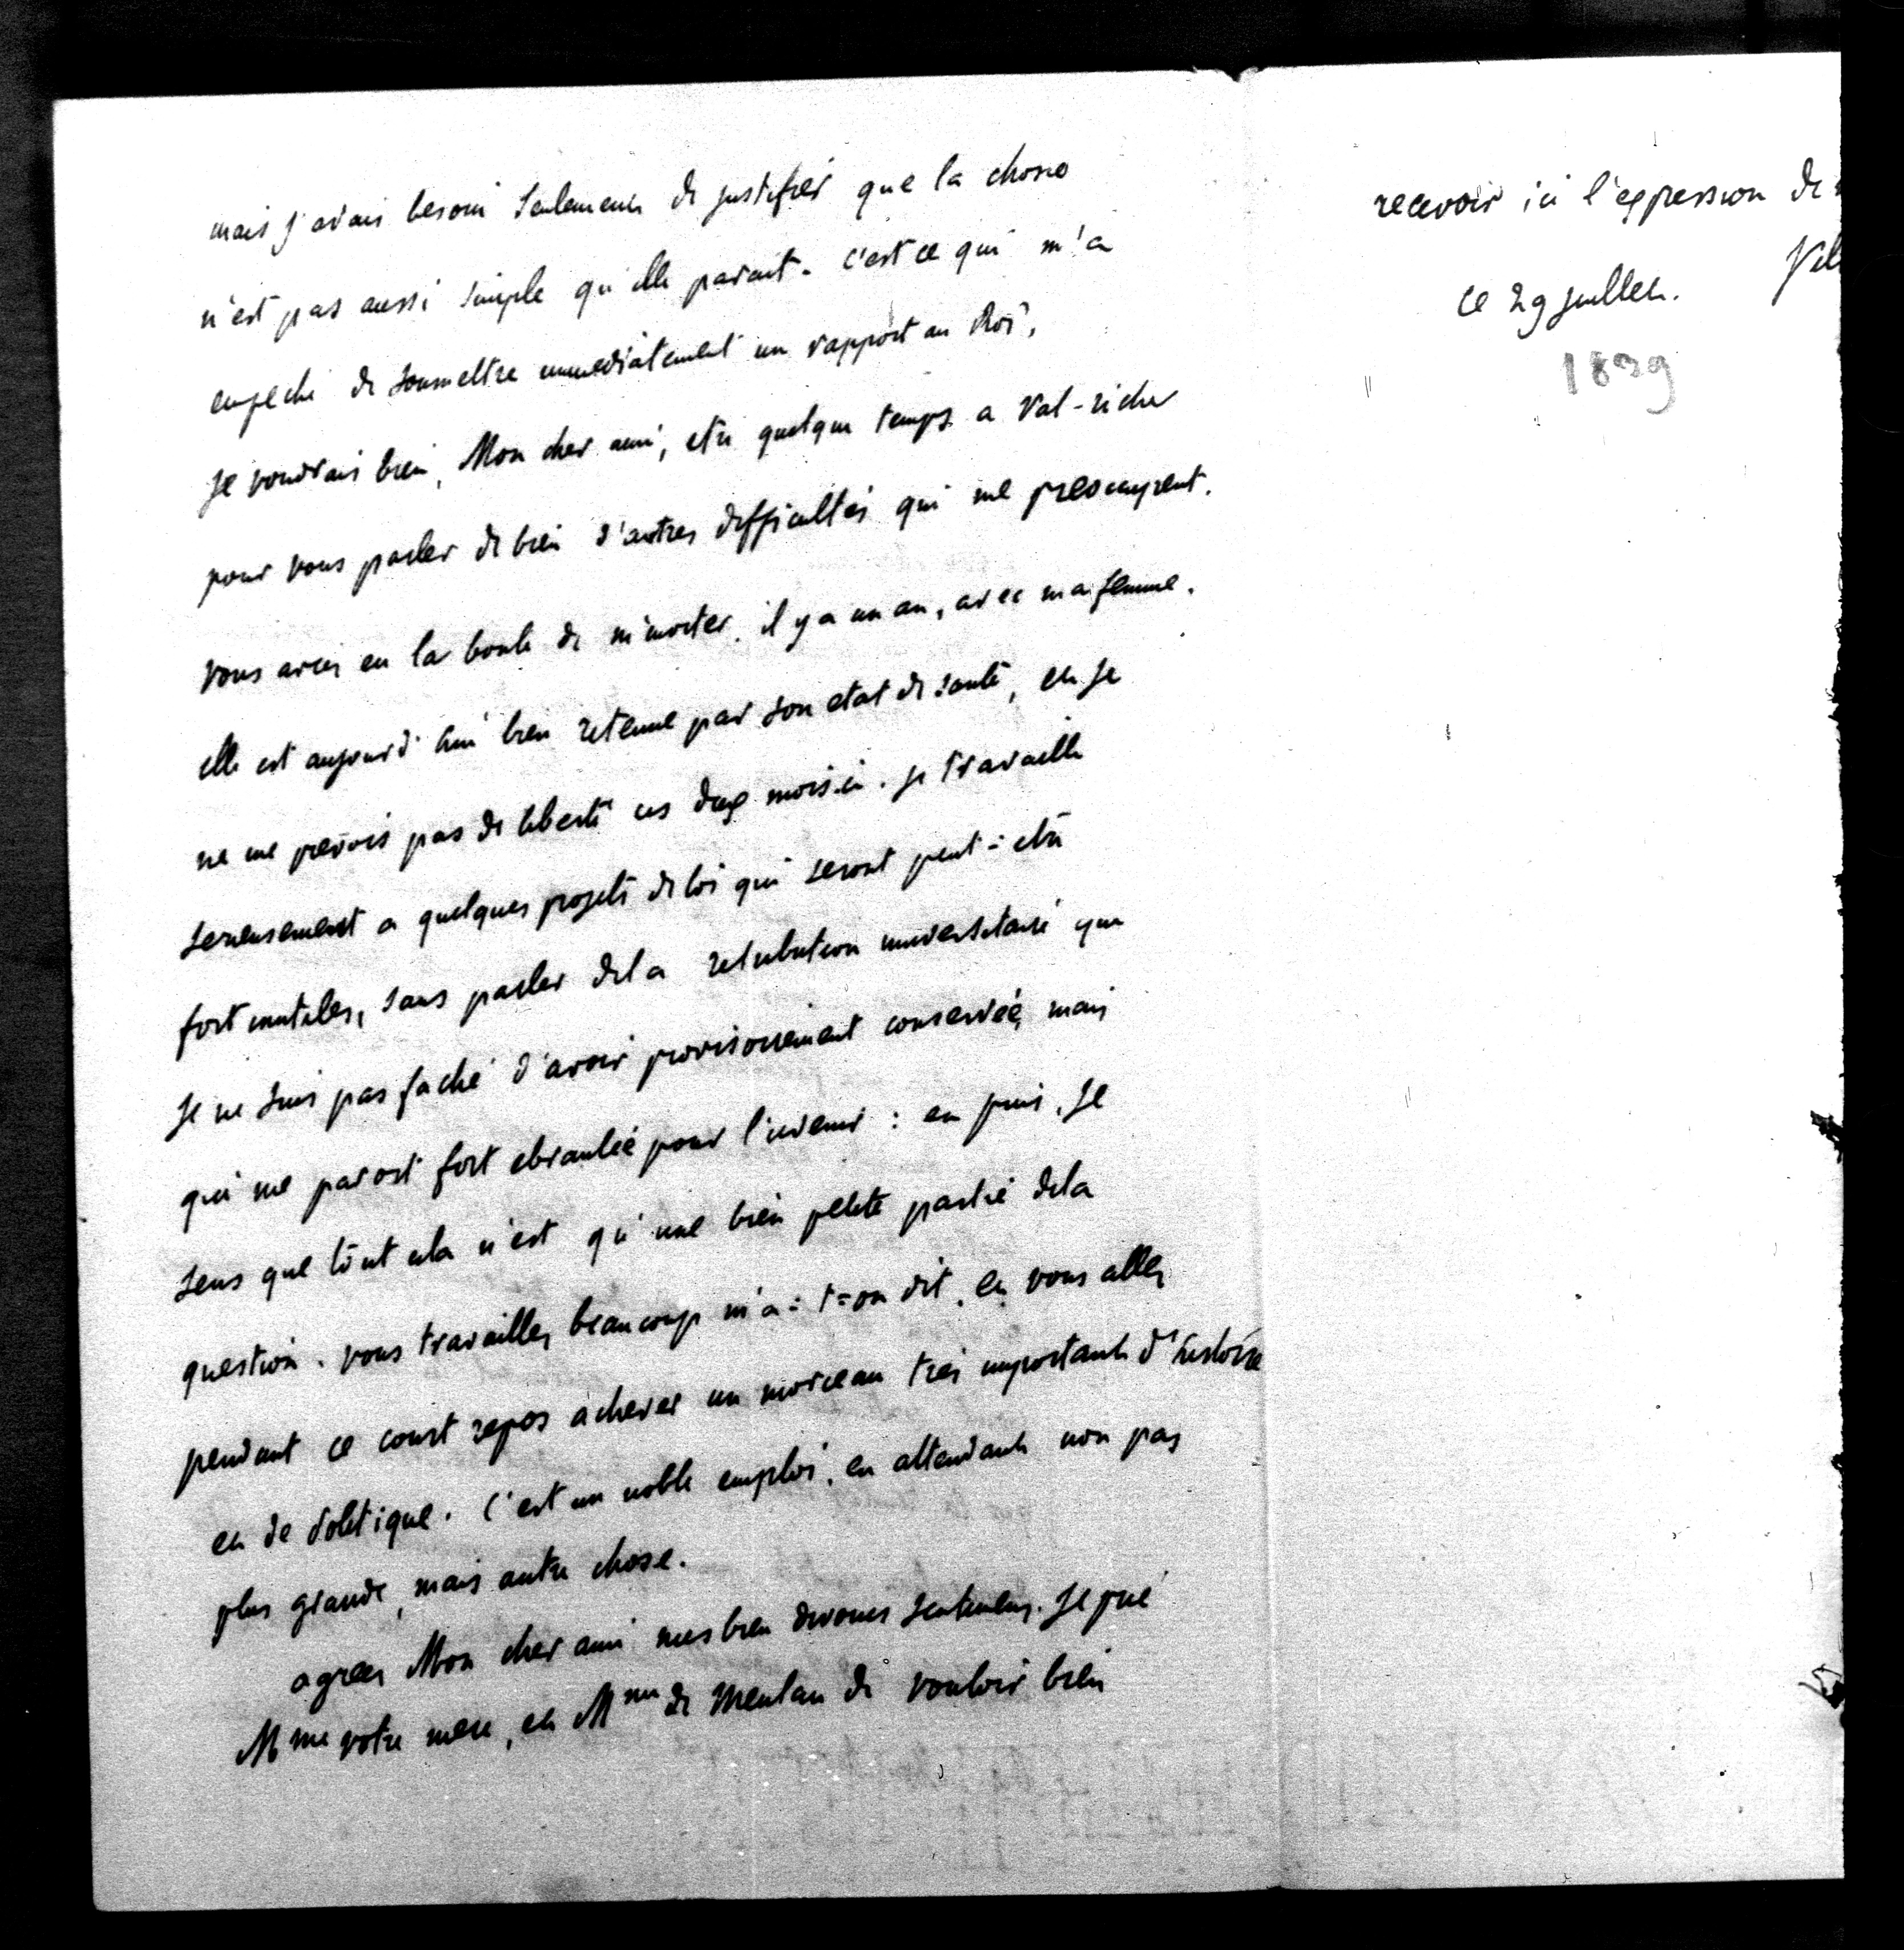 mais j'avais besoin seulement de justifier que la chose
n'est pas aussi simple qu'elle parait. c'est ce qui m'a
empeché de soumettre immediatement un rapport au Roi.
je voudrais bien, Mon cher ami, etre quelque temps a Val-richer
pour vous parler de bien d'autres difficultés qui me preoccupent.
vous avez eu la bonté de m'inviter, il y a un an, avec ma femme.
elle est aujourd'hui bien retenue par son etat de santé, et je
ne me prevois pas de liberté ces deux mois-ci. je travaille
serieusement a quelques projets de loi qui seront peut-etre
fort inutiles, sans parler de la retribution universitaire que
je ne suis pas faché d'avoir provisoirement conservée, mais
qui me parait fort ebranlée pour l'avenir : et puis, je
sens que tout cela n'est qu'une bien petite partie de la
question. vous travaillez beaucoup m'a-t-on dit, et vous allez
pendant ce court repos achever un morceau très important d'histoire
et de politique. C'est un noble emploi, en attendant non pas
plus grande, mais autre chose.
agreez Mon cher ami mes bien devoués sentimens. Je prie
Mme votre mere, et Mme de Meulan de vouloir bien
recevoir ici l'expression de
Vil
ce 29 juillet.
1839